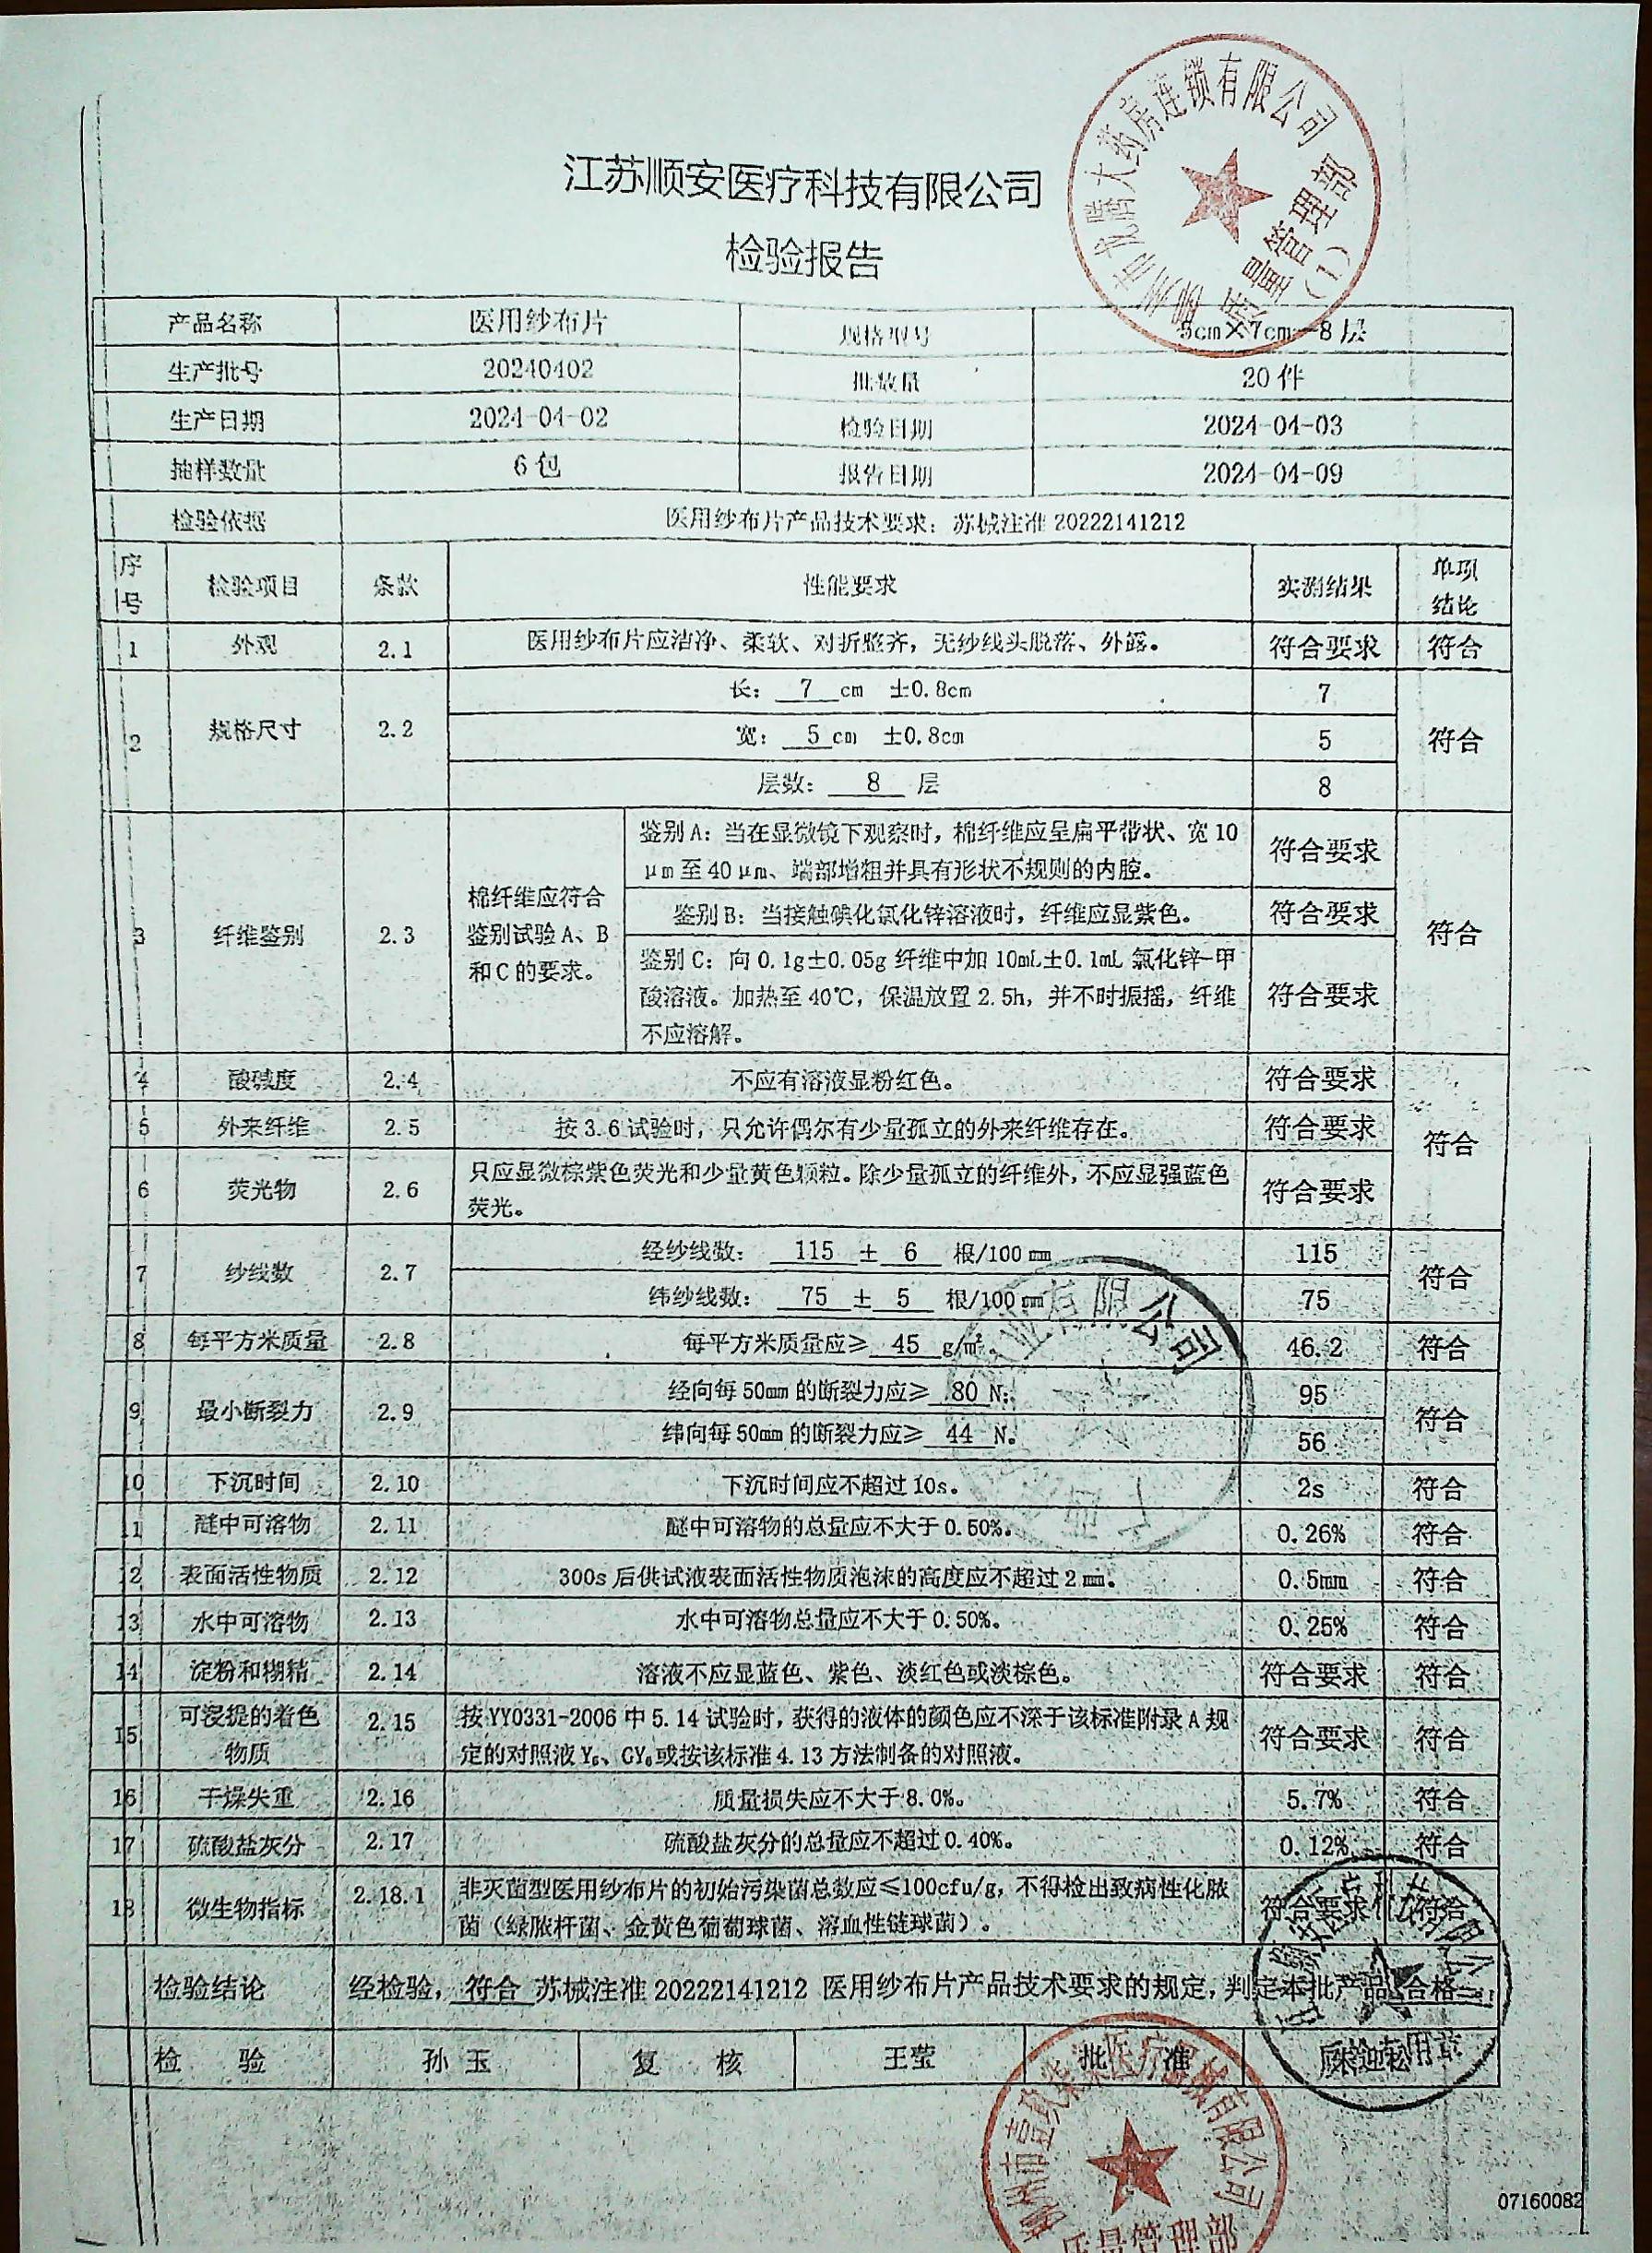 江苏顺安医疗科技有限公司
检验报告
大药房连锁有限公司
质量管理部
(1)
产品名称 医用纱布片 规格型号 5cm×7cm-8层
生产批号 20240402 批数量 20件
生产日期 2024-04-02 检验日期 2024-04-03
抽样数量 6包 报告日期 2024-04-09
检验依据 医用纱布片产品技术要求：苏械注准 20222141212
序号 检验项目 条款 性能要求 实测结果 单项结论
1 外观 2.1 医用纱布片应洁净、柔软、对折整齐，无纱线头脱落、外露。 符合要求 符合
2 规格尺寸 2.2 长： 7 cm ±0.8cm 7 符合
宽： 5 cm ±0.8cm 5
层数： 8 层 8
3 纤维鉴别 2.3 棉纤维应符合鉴别试验A、B和C的要求。
鉴别A：当在显微镜下观察时，棉纤维应呈扁平带状、宽10
μm至40μm、端部增粗并具有形状不规则的内腔。 符合要求 符合
鉴别B：当接触碘化氯化锌溶液时，纤维应显紫色。 符合要求
鉴别C：向0.1g±0.05g纤维中加10mL±0.1mL氯化锌-甲
酸溶液。加热至40℃，保温放置2.5h，并不时振摇，纤维
不应溶解。 符合要求
4 酸碱度 2.4 不应有溶液显粉红色。 符合要求 符合
5 外来纤维 2.5 按3.6试验时，只允许偶尔有少量孤立的外来纤维存在。 符合要求
6 荧光物 2.6 只应显微棕紫色荧光和少量黄色颗粒。除少量孤立的纤维外，不应显强蓝色
荧光。 符合要求
7 纱线数 2.7 经纱线数： 115 ± 6 根/100mm 115 符合
纬纱线数： 75 ± 5 根/100mm 75
8 每平方米质量 2.8 每平方米质量应≥ 45 g/m²。 46.2 符合
9 最小断裂力 2.9 经向每50mm的断裂力应≥ 80 N； 95 符合
纬向每50mm的断裂力应≥ 44 N。 56
10 下沉时间 2.10 下沉时间应不超过10s。 2s 符合
11 醚中可溶物 2.11 醚中可溶物的总量应不大于0.50%。 0.26% 符合
12 表面活性物质 2.12 300s后供试液表面活性物质泡沫的高度应不超过2mm。 0.5mm 符合
13 水中可溶物 2.13 水中可溶物总量应不大于0.50%。 0.25% 符合
14 淀粉和糊精 2.14 溶液不应显蓝色、紫色、淡红色或淡棕色。 符合要求 符合
15 可浸提的着色物质 2.15 按YY0331-2006中5.14试验时，获得的液体的颜色应不深于该标准附录A规
定的对照液Y₅、GY₆或按该标准4.13方法制备的对照液。 符合要求 符合
16 干燥失重 2.16 质量损失应不大于8.0%。 5.7% 符合
17 硫酸盐灰分 2.17 硫酸盐灰分的总量应不超过0.40%。 0.12% 符合
18 微生物指标 2.18.1 非灭菌型医用纱布片的初始污染菌总数应≤100cfu/g，不得检出致病性化脓
菌（绿脓杆菌、金黄色葡萄球菌、溶血性链球菌）。 符合要求 符合
检验结论 经检验， 符合 苏械注准 20222141212 医用纱布片产品技术要求的规定，判定本批产品 合格
检 验 孙玉 复 核 王莹 批 准
业有限公司
医疗器械有限公司
质量管理部
07160082